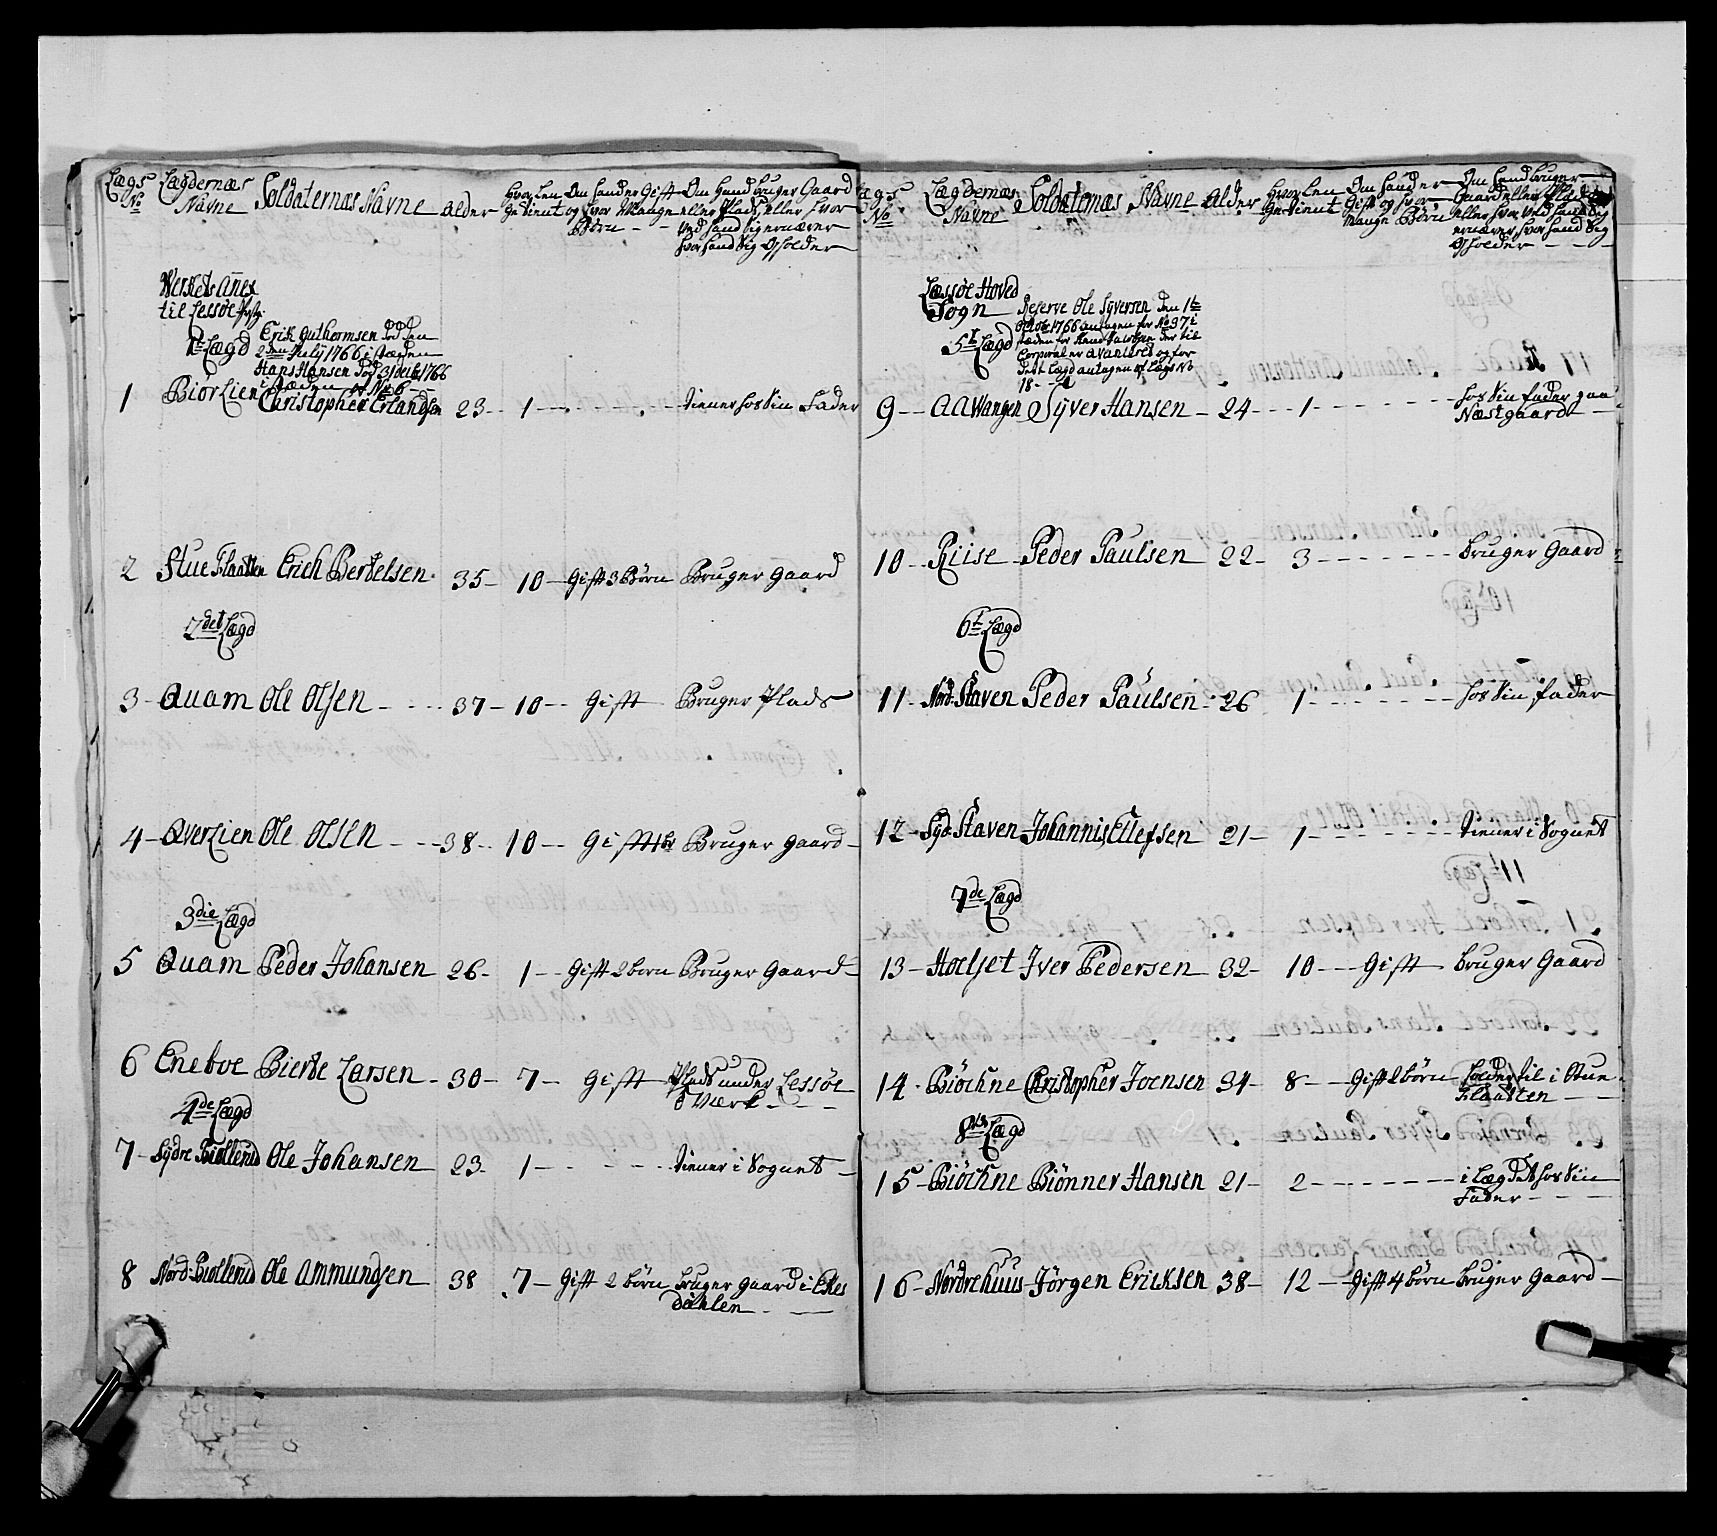 Lægs No | Lægdernæs Navne | Soldaternæs Navne | Alder | hvor Len gedient | Om hand er Gift og hvor Mange Børn | Om Hand bruger Gaard eller Plads, eller hvor ved hand sig ernærer hvor hand sig Opholder
Werkets Anex
til Lessøe
1te Lægd
Erik Guthormsen død den
2den Julij 1766 i stæden
Hans Hansen Død 3 octob 1766
i stæden No 6
1 Biorlien Christopher Erlandsen 23 - 1 - tiener hos sin Fader
2 Stue Flaatten Erich Bertelsen 35 - 10 - Gift 3 Børn Bruger Gaard
2det Lægd
3 - Quam Ole Olsen - 37 - 10 - Gift Bruger Plads
4 - Øverlien Ole Olsen - 38 - 10 - Gift 1 b Bruger Gaard
3die Lægd
5 Quam Peder Johansen 26 - 1 - Gift 2 born Bruger Gaard
6 Eneboe Bierte Larsen - 30 - 7 - Gift Plads under Lessøe
Værk
4de Lægd
7 - Sydre Ole Johansen 23 - 1 - tiener i Sognet
8 Nord: Ole Ammundsen 38 7 - Gift 2 børn bruger Gaard i
Dahlen
Lægs No | Lægdernæs Navne | Soldaternæs Navne | Alder | hvor Len gedient | Om hand er Gift og hvor mange Børn | Om hand bruger Gaard eller Plads eller hvor ved hand sig ernærer, hvor hand sig Opholder
Læssøe Hoved
Sogn
5te Lægd
Reserve Ole Syversen den 1te
Octob 1766 antagen for No 97 i
stæden for Knud Jacobsen der til
Corporal er avanjered og for
dette Lægd antagen af Lægs No
18
9 - Aawangen Syver Hansen - 24 - 1 - hos sin fader paa
Næstgaard
10 - Riise Peder Paulsen 22 - 3 - bruger Gaard
6te Lægd
11 - Nord-Staven Peder Paulsen - 26 1 - hos sin fader
12 - Syd-Staven Johannis Ellefsen 21 - 1 - tiener i Sognet
7de Lægd
13 - Hoelset Iver Pedersen 32 - 10 - Gift bruger Gaard
14 - Biöchne Christopher Joensen 34 - 8 - Gift 2 børn holder til i Stue
Flaatten
8de Lægd
15 - Biöchne Biönner Hansen 21 - 2 - i Lægdet hos Sin
Fader
16 - Nordrehuus Jörgen Ericksen 38 - 12 - Gift 4 børn bruger Gaard